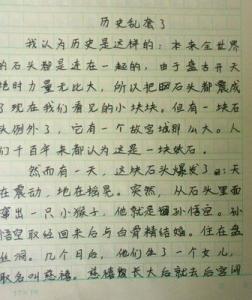 历史乱套了
我认为历史是这样的：本来全世界
的石头都是连在一起的，由于盘古开天
地时力量无比大，所以把石头都震成
了现在我们看见的小块块。但有一块石
头例外了，它有一个故宫城那么大。人
们千百年来都认为这是一块然石。
然而有一天，这块石头爆发了：天
在震动，地在摇晃。突然，从石头里面
蹦出一只小猴子，他就是孙悟空。孙
悟空取经回来后与白骨精结婚。住在盘
丝洞。几个月后，他们生了一个女儿，
取名叫慈禧。慈禧长大后就去后宫闹